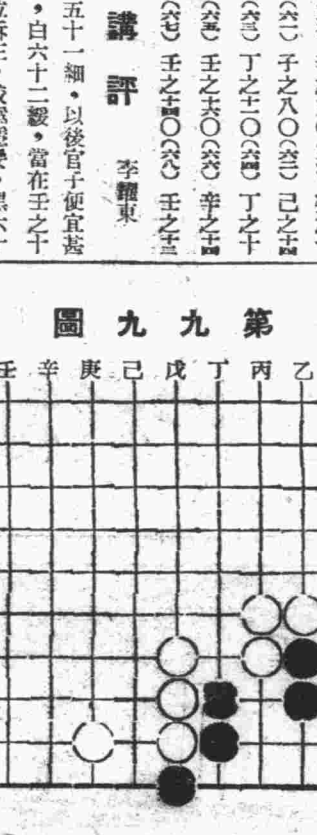 （六一）子之八〇（六二）己之十四
（六三）丁之十二〇（六四）丁之十
（六五）壬之十六〇（六六）辛之十四
（六七）壬之十四〇（六八）壬之十三
講評 李耀東
五十一細，以後官子便宜甚
，白六十二緩，當在壬之十
第九九圖
乙 丙 丁 戊 己 庚 辛 壬